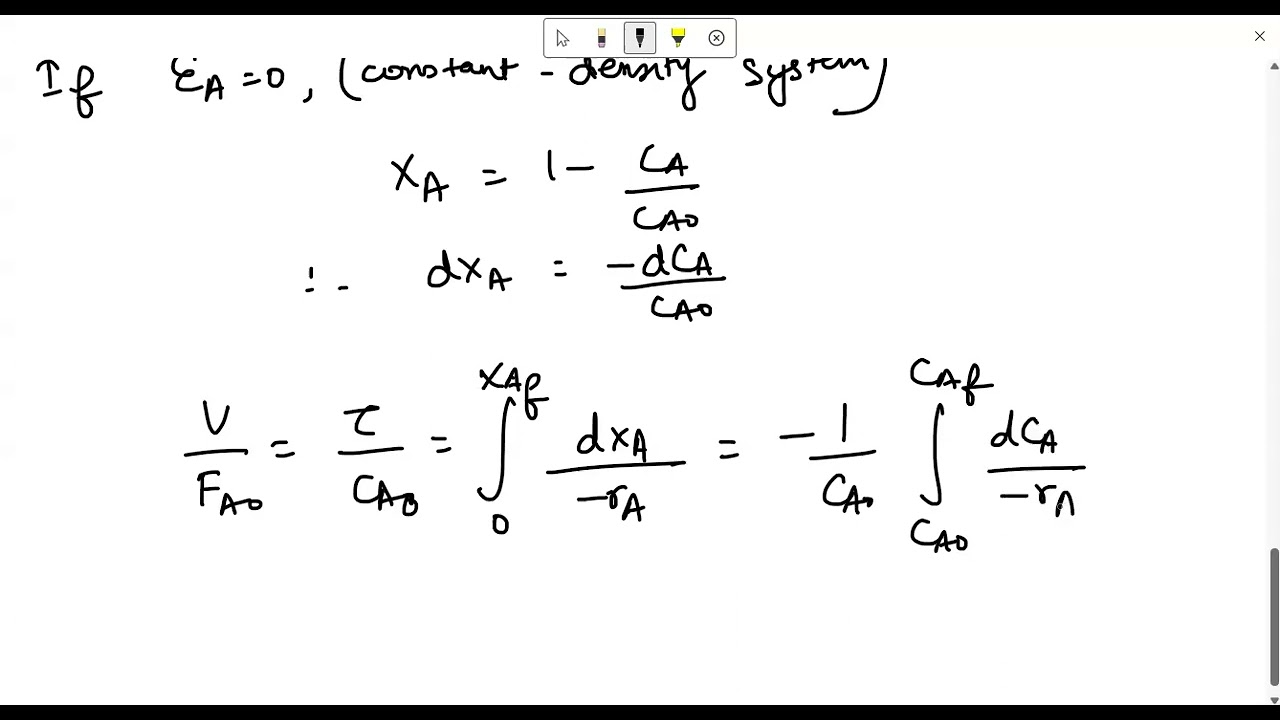 If εA = 0, (constant-density system)
XA = 1 - CA/CA0
∴ dXA = -dCA/CA0
V/FA0 = τ/CA0 = ∫_0^XAf dXA/-rA = -1/CA0 ∫_CA0^CAf dCA/-rA